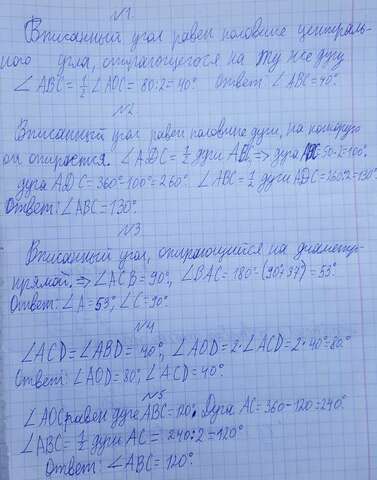 №1.
Вписанный угол равен половине централь-
ного угла, опирающегося на ту же дугу
∠ABC = 1/2 ∠AOC = 80:2 = 40° Ответ: ∠ABC = 40°.
№2
Вписанный угол равен половине дуги, на которую
он опирается. ∠ADC = 1/2 дуги ABC => дуга ABC = 50·2=100°.
дуга ADC = 360°-100°=260° ∠ABC = 1/2 дуги ADC = 260:2=130°
Ответ: ∠ABC - 130°.
№3
Вписанный угол, опирающийся на диаметр-
прямой. => ∠ACB = 90°, ∠BAC = 180°-(90°+37°) = 53°
Ответ: ∠A = 53°, ∠C = 90°
№4
∠ACD = ∠ABD = 40°, ∠AOD = 2·∠ACD = 2·40°=80°
Ответ: ∠AOD = 80°, ∠ACD = 40°.
№5
∠AOC равен дуге ABC = 120°. Дуга AC = 360-120=240°
∠ABC = 1/2 дуги AC = 240:2-120°
Ответ: ∠ABC = 120°.